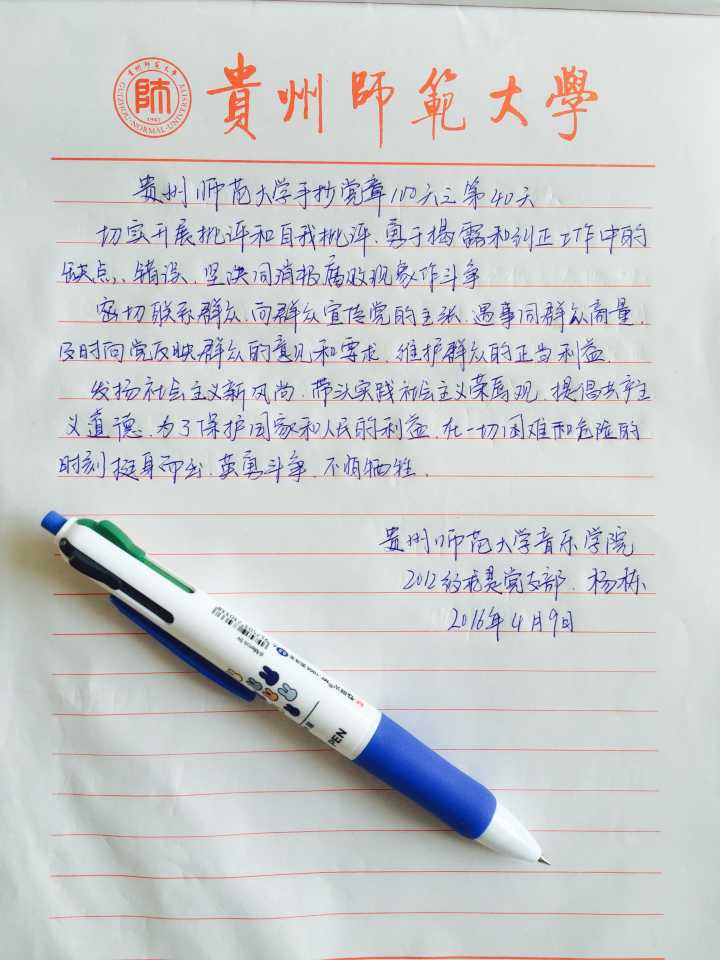 貴州師範大學
貴州師范大學
師
1941
GUIZHOU NORMAL UNIVERSITY
贵州师范大学手抄党章100天之第40天
切实开展批评和自我批评.勇于揭露和纠正工作中的
缺点、错误.坚决同消极腐败现象作斗争
密切联系群众.向群众宣传党的主张.遇事同群众商量.
及时向党反映群众的意见和要求.维护群众的正当利益.
发扬社会主义新风尚.带头实践社会主义荣辱观.提倡共产主
义道德.为了保护国家和人民的利益.在一切困难和危险的
时刻挺身而出.英勇斗争.不怕牺牲.
贵州师范大学音乐学院
2012级 党支部.杨栋
2016年4月9日
PEN